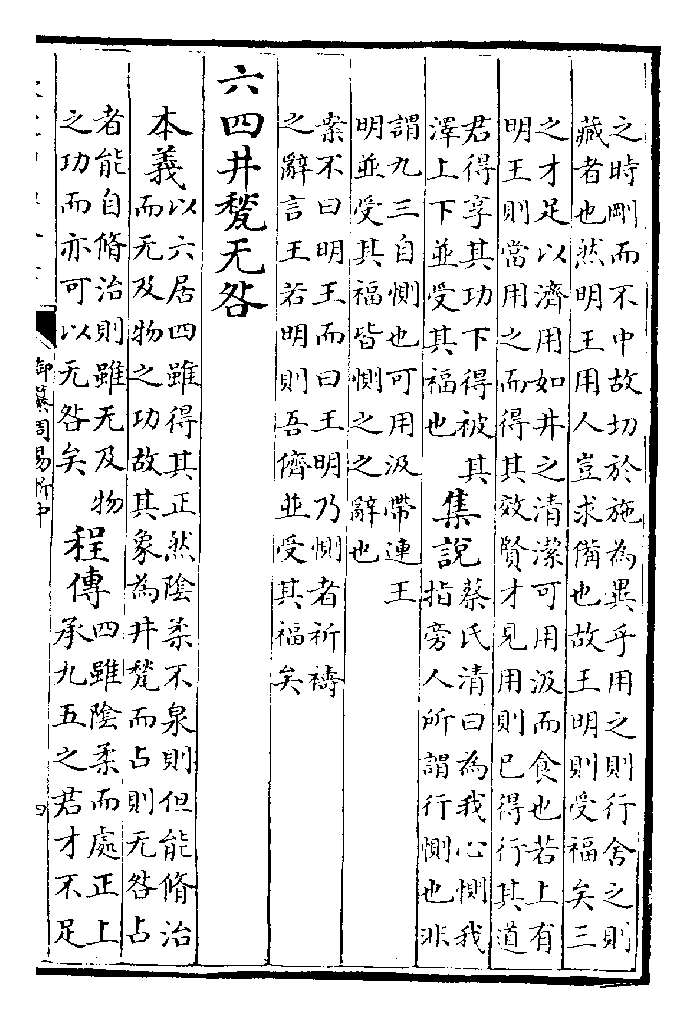 之時剛而不中故切於施為異乎用之則行舍之則
藏者也然明王用人豈求備也故王明則受福矣三
之才足以濟用如井之清潔可用汲而食也若上有
明王則當用之而得其效賢才見用則已得行其道
君得享其功下得被其
澤上下並受其福也
集說
蔡氏清曰為我心惻我
指旁人所謂行惻也非
謂九三自惻也可用汲帶連王
明並受其福皆惻之之辭也
案不曰明王而曰王明乃惻者祈禱
之辭言王若明則吾儕並受其福矣
六四井甃无咎
本義
以六居四雖得其正然陰柔不泉則但能脩治
而无及物之功故其象為井甃而占則无咎占
者能自脩治則雖无及物
之功而亦可以无咎矣
程傳
四雖陰柔而處正上
承九五之君才不足
御纂周易折中